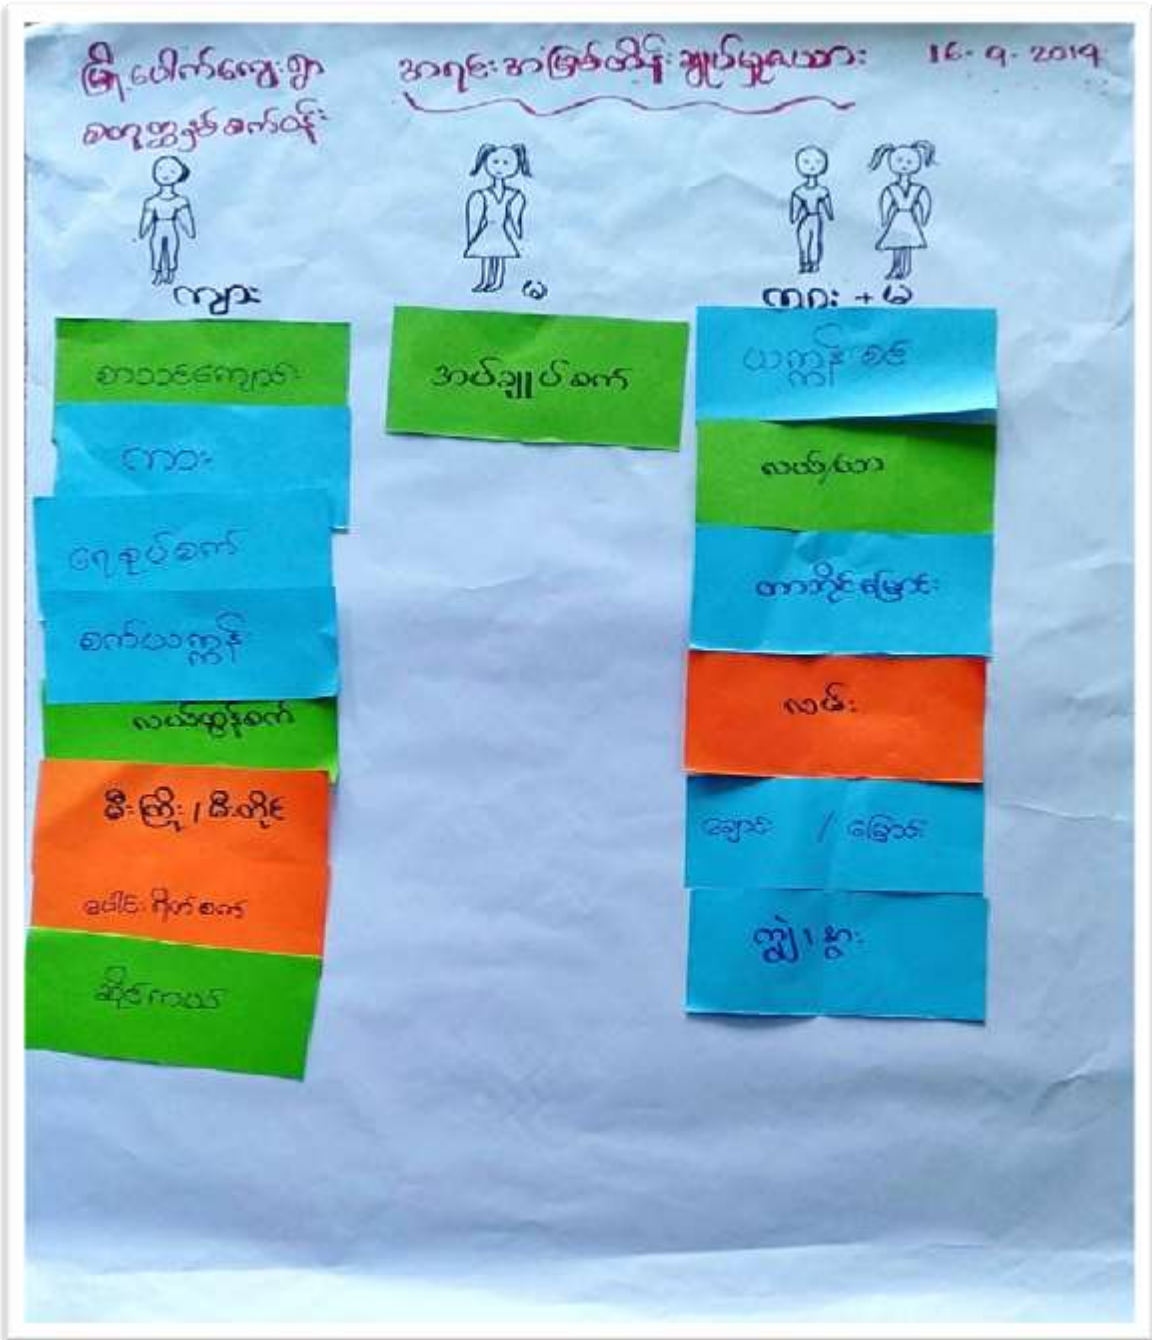 မြို့ပေါက်ကျေးရွာ
အရင်းအမြစ်ထိန်းချုပ်မှုဇယား
16-9-2019
စက်ဝန်း
ကျား
မ
ကျား + မ
စာသင်ကျောင်း
ကား
ရေစုပ်စက်
စက်ယက္ကန်း
လယ်ထွန်စက်
မီးကြိုး / မီးတိုင်
စပါးရိတ်စက်
ဆိုင်ကယ်
အပ်ချုပ်စက်
ယက္ကန်းစင်
လယ်/ယာ
တာဘိုင်မြောင်း
လမ်း
ချောင်း / မြောင်း
ကျွဲ၊ နွား